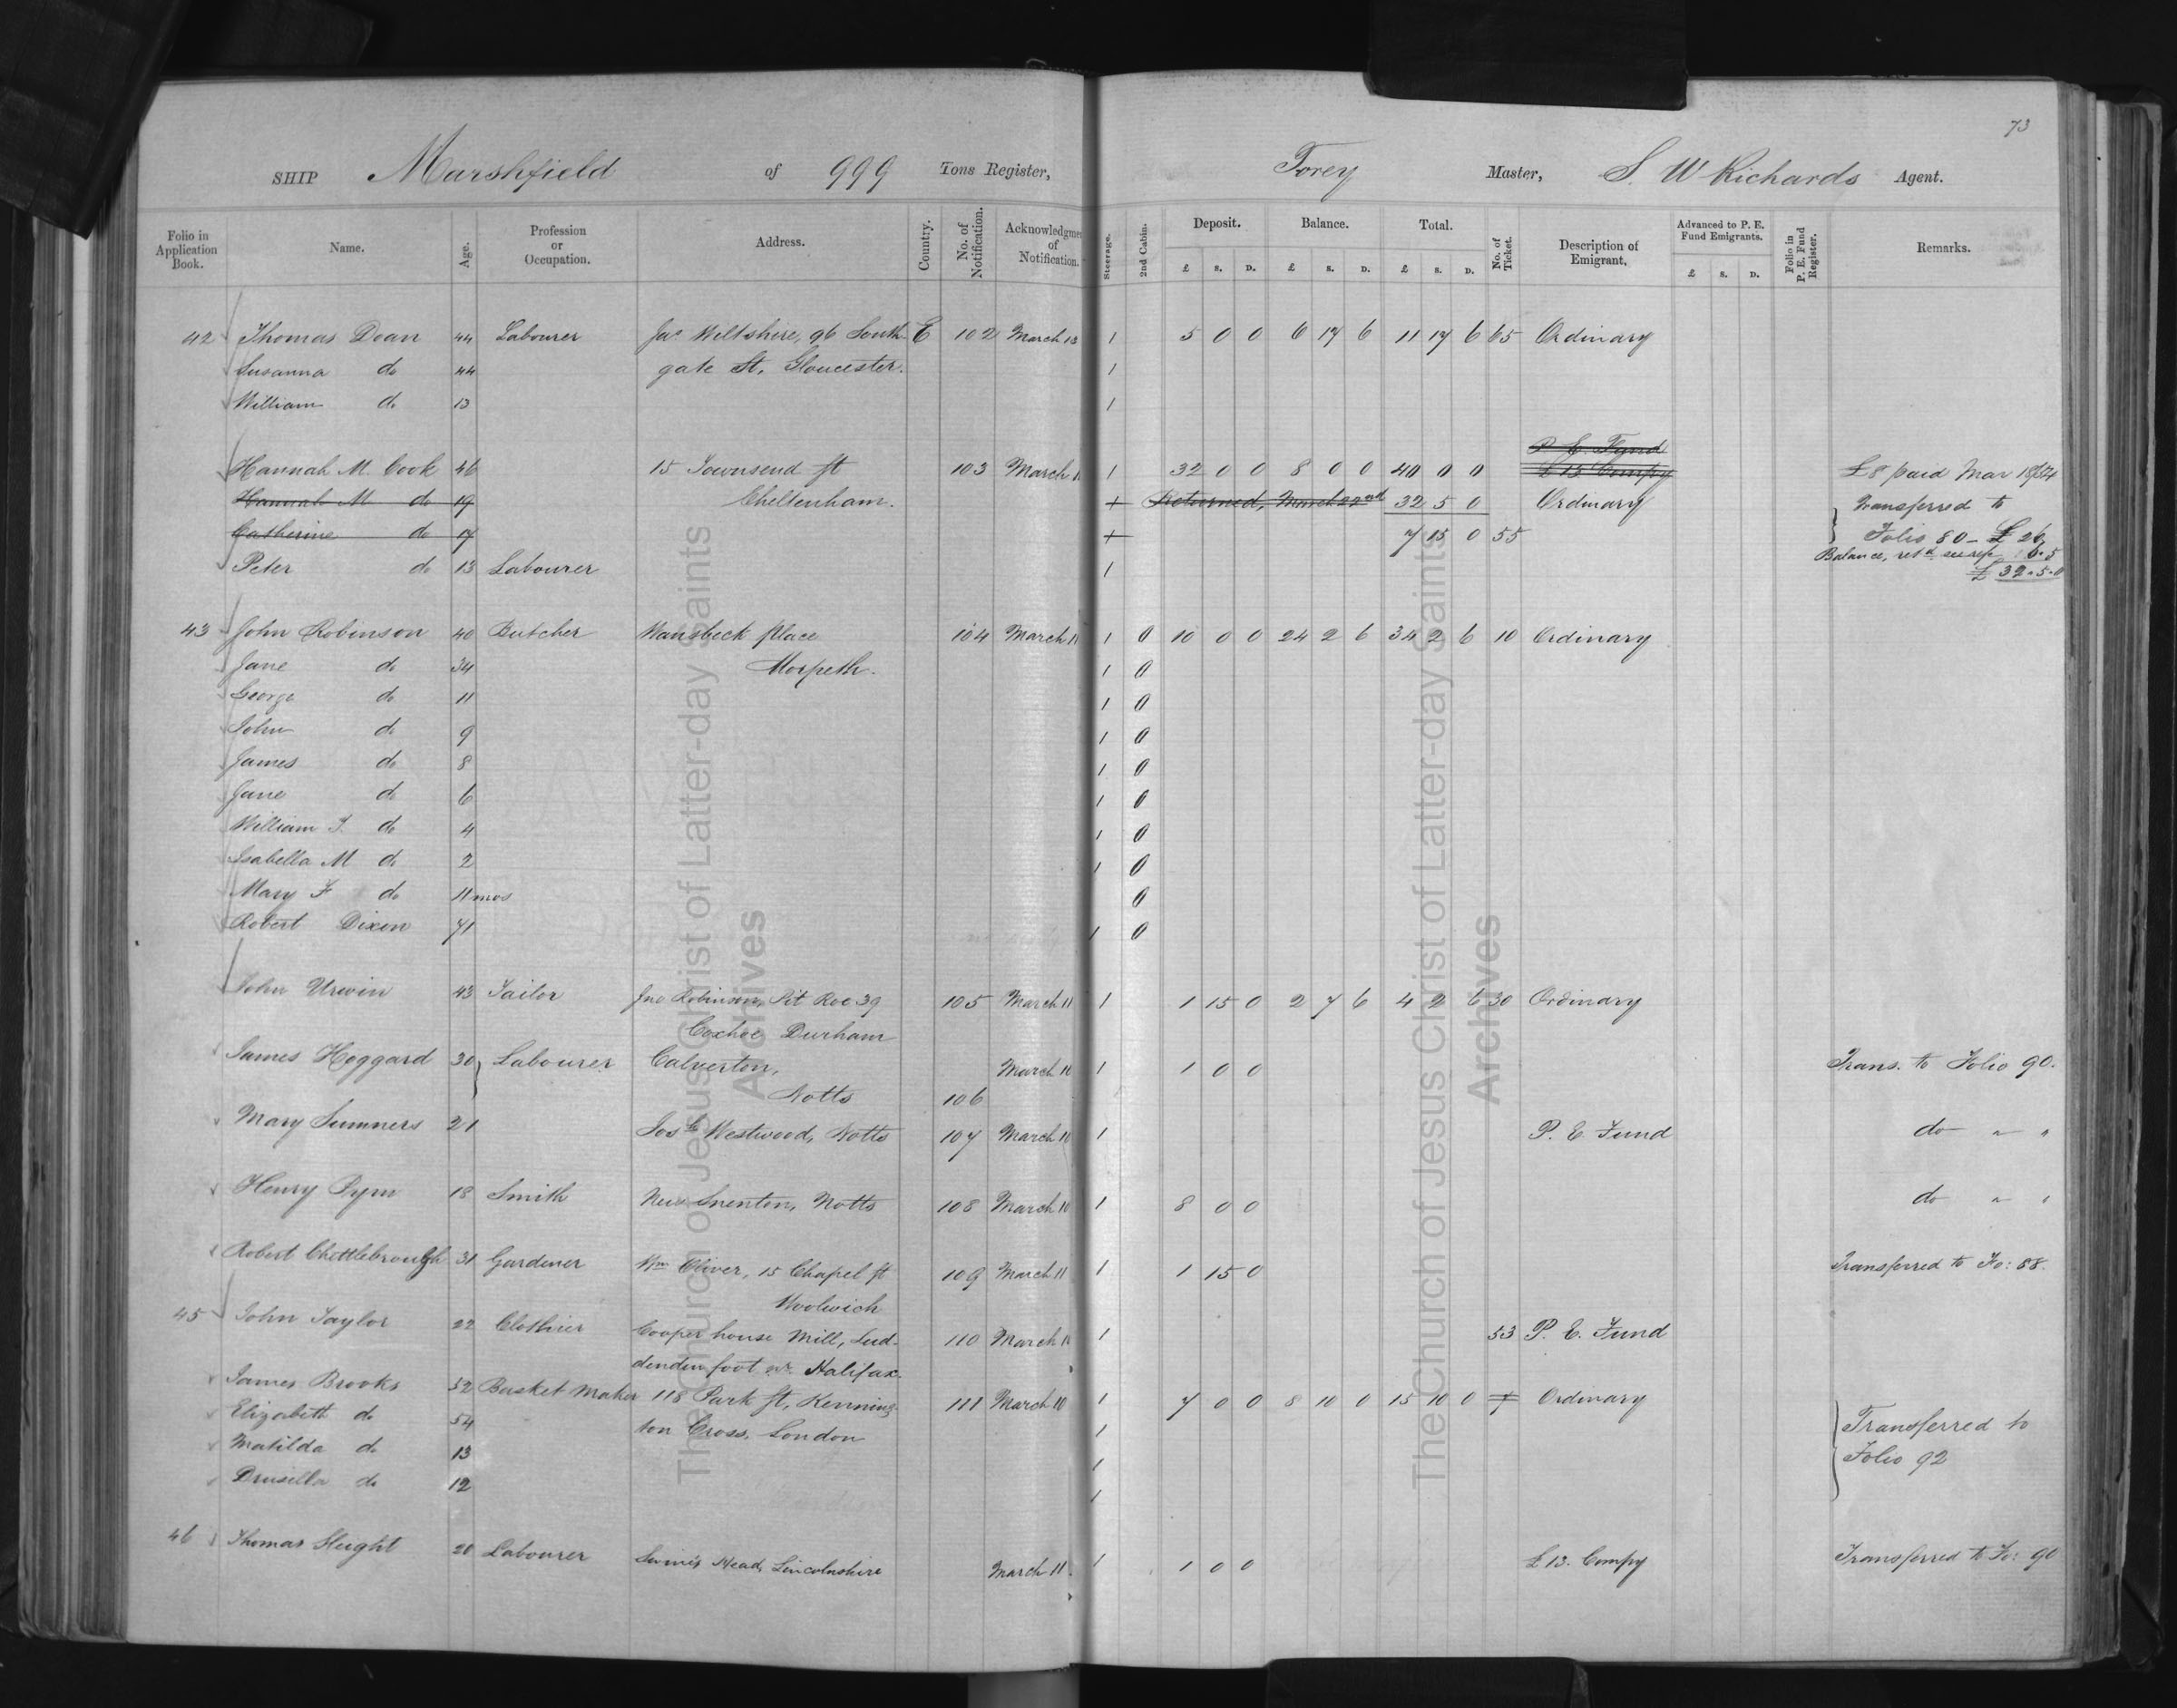 73
SHIP Marshfield of 999 Tons Register, Torey Master, S. W Richards Agent.
Folio in Application Book. Name. Age. Profession or Occupation. Address. Country. No. of Notification. Acknowledgme of Notification. Steerage. 2nd Cabin. Deposit. £ s. D. Balance. £ s. D. Total. £ s. D. No. of Ticket. Description of Emigrant. Advanced to P. E. Fund Emigrants. £ s. D. Folio in P. E. Fund Register. Remarks.
42 Thomas Doan 44 Labourer Jas Wiltshire, 96 South- E 102 March 13 1 5 0 0 6 17 6 11 17 6 65 Ordinary
Susanna do 44 gate St, Gloucester. 1
William do 13 1
P. E. Fund
Hannah M Cook 46 15 Townsend St 103 March 1 32 0 0 8 0 0 40 0 0 £13 Compy £8 paid Mar 18/54
Hannah M do 19 Cheltenham. + Returned, March 22nd 32 5 0 Ordinary Transferred to
Catherine do 17 + 7 15 0 55 Folio 80 - £ 26
Balance, retd 6.5
Peter do 13 Labourer 1 £ 32.5.0
43 John Robinson 40 Butcher Wansbeck place 104 March 11 1 0 10 0 0 24 2 6 34 2 6 10 Ordinary
Jane do 34 Morpeth. 1 0
George do 11 1 0
John do 9 1 0
James do 8 1 0
Jane do 6 1 0
William J. do 4 1 0
Isabella M do 2 1 0
Mary F do 11 mos 0
Robert Dixon 71 1 0
John Urwin 43 Tailor Jno Robinson, Pit Roe 39 105 March 11 1 1 15 0 2 7 6 4 2 6 30 Ordinary
Coxhoe Durham
James Hoggard 30 Labourer Calverton, March 10 1 1 0 0 Trans. to Folio 90.
Notts 106
Mary Sumners 21 Josh Westwood, Notts 107 March 10 1 P. E Fund do " "
Henry Pym 18 Smith New Snenton, Notts 108 March 10 1 8 0 0 do " "
Robert Chettlebrough 31 Gardener Wm Oliver, 15 Chapel St 109 March 11 1 1 15 0 Transferred to Fo: 88.
Woolwich
45 John Taylor 22 Clothier Cooper house Mill, Lud- 110 March 1 53 P. E. Fund
denden foot nr. Halifax.
James Brooks 52 Basket Maker 118 Park St, Kenning- 111 March 10 1 7 0 0 8 10 0 15 10 0 Ordinary
Elizabeth do 54 ton Cross, London 1 Transferred to
Matilda do 13 1 Folio 92
Drusilla do 12 1
46 Thomas Sleight 20 Labourer Swine's Head, Lincolnshire March 11. 1 1 0 0 £13. Compy Transferred to Fo: 90
The Church of Jesus Christ of Latter-day Saints
Archives
The Church of Jesus Christ of Latter-day Saints
Archives